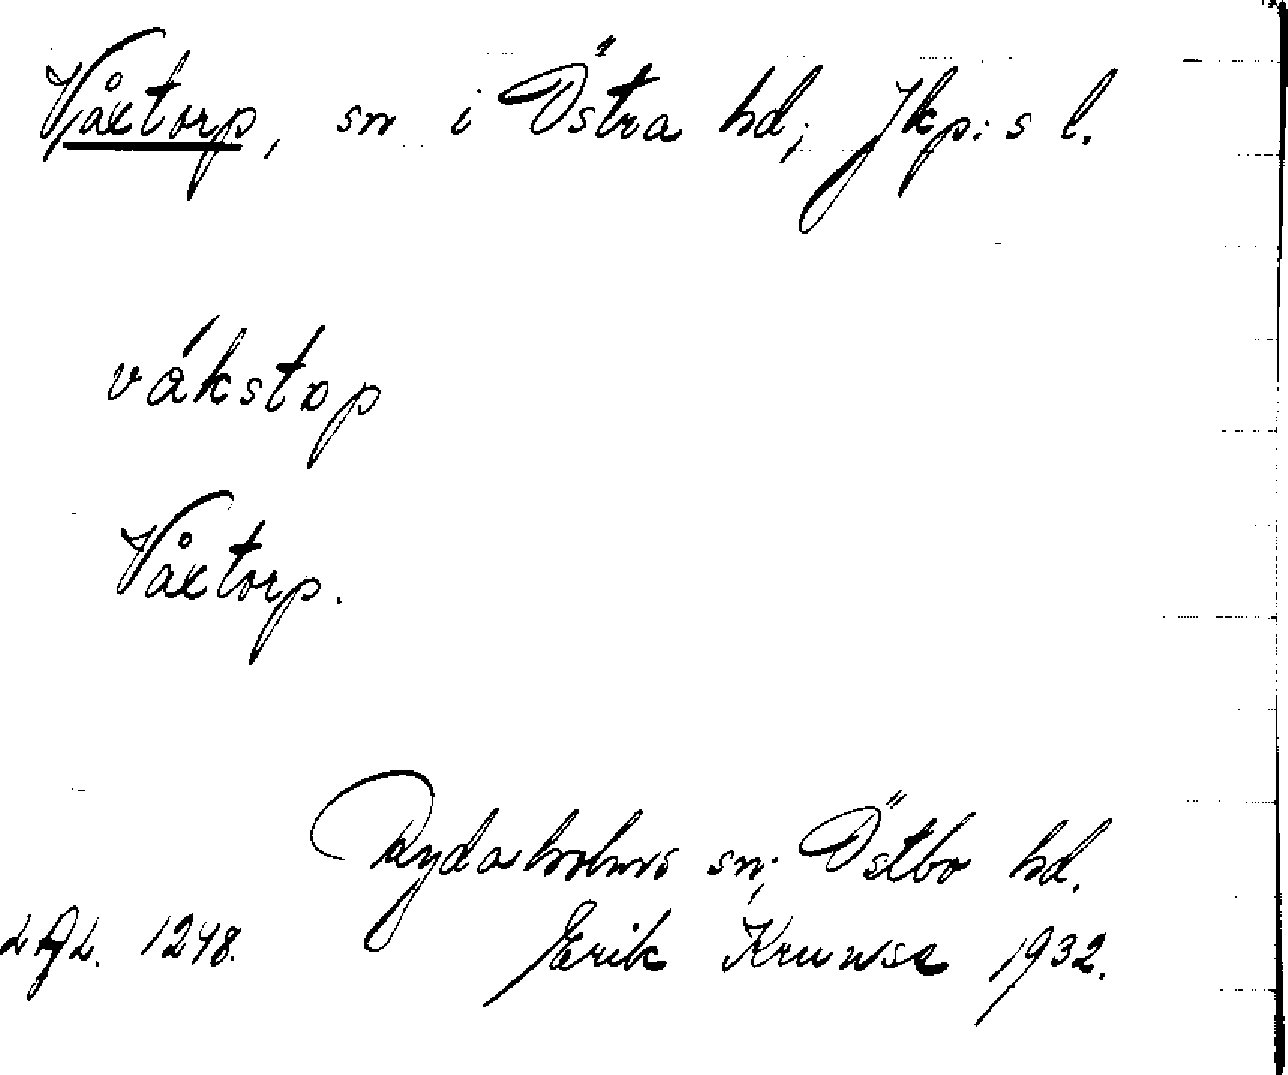 Våxtorp, sn i Östra hd; Jkp:s l.
våkstop
Våxtorp.
Rydaholms sn; Östbo hd.
Erik Kruuse 1932.
1248.